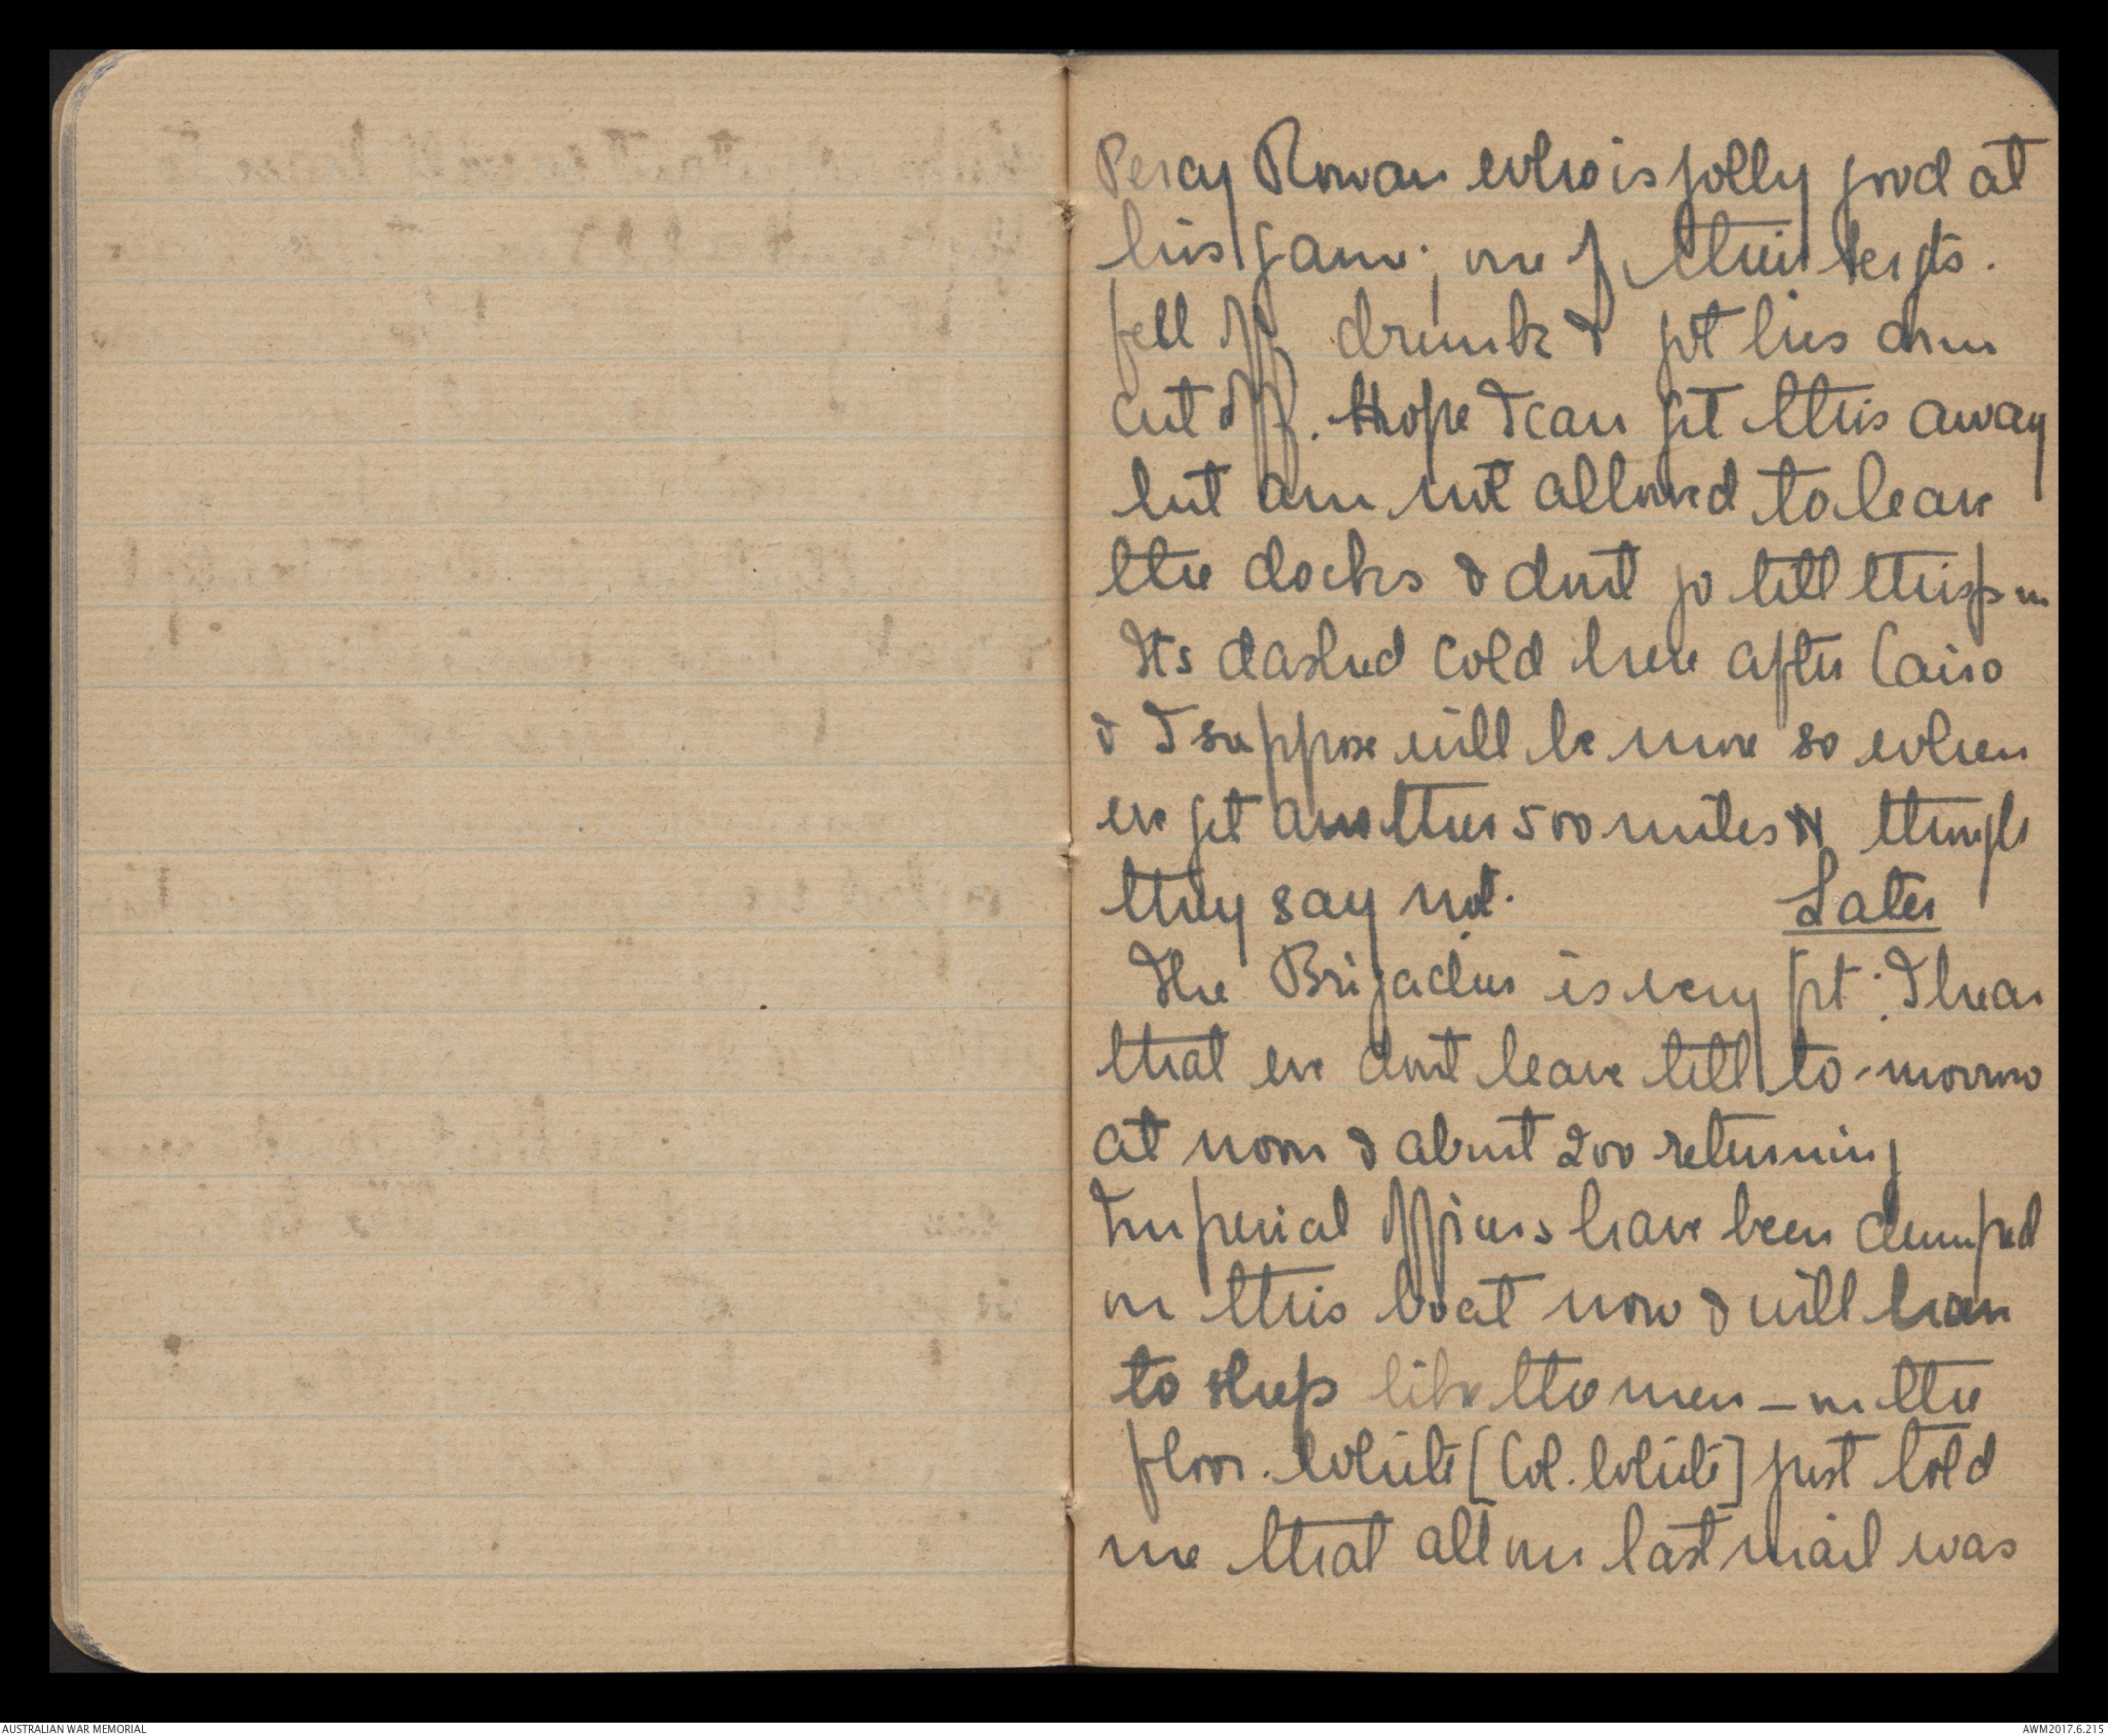 Percy Rowan who is jolly good at
his game; one of their sergts.
fell off drunk & got his arm
cut off. Hope I can get this away
but am not allowed to leave
the docks & dont go till this pm
Its dashed cold here after Cairo
& I suppose will be more so when
we get another 500 miles N though
they say not. Later
The Brigadier is very gt: I hear
that we dont leave till to-morrow
at noon & about 200 returning
Imperial officers have been dumped
on this boat now & will have
to sleep like the men - on the
floor. White [Col. White] just told
me that all our last mail was
AUSTRALIAN WAR MEMORIAL
AWM2017.6.215